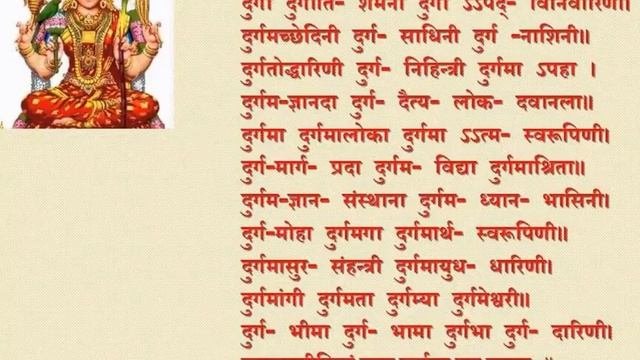 दुर्गा दुर्गार्ति- शमनी दुर्गा ऽऽपद्- विनिवारिणी।
दुर्गमच्छेदिनी दुर्ग- साधिनी दुर्ग -नाशिनी॥
दुर्गतोद्धारिणी दुर्ग- निहिन्त्री दुर्गमा ऽपहा ।
दुर्गम-ज्ञानदा दुर्ग- दैत्य- लोक- दवानला॥
दुर्गमा दुर्गमालोका दुर्गमा ऽऽत्म- स्वरूपिणी।
दुर्ग-मार्ग- प्रदा दुर्गम- विद्या दुर्गमाश्रिता॥
दुर्गम-ज्ञान- संस्थाना दुर्गम- ध्यान- भासिनी।
दुर्ग-मोहा दुर्गमगा दुर्गमार्थ- स्वरूपिणी॥
दुर्गमासुर- संहन्त्री दुर्गमायुध- धारिणी।
दुर्गमांगी दुर्गमता दुर्गम्या दुर्गमेश्वरी॥
दुर्ग- भीमा दुर्ग- भामा दुर्गभा दुर्ग- दारिणी।